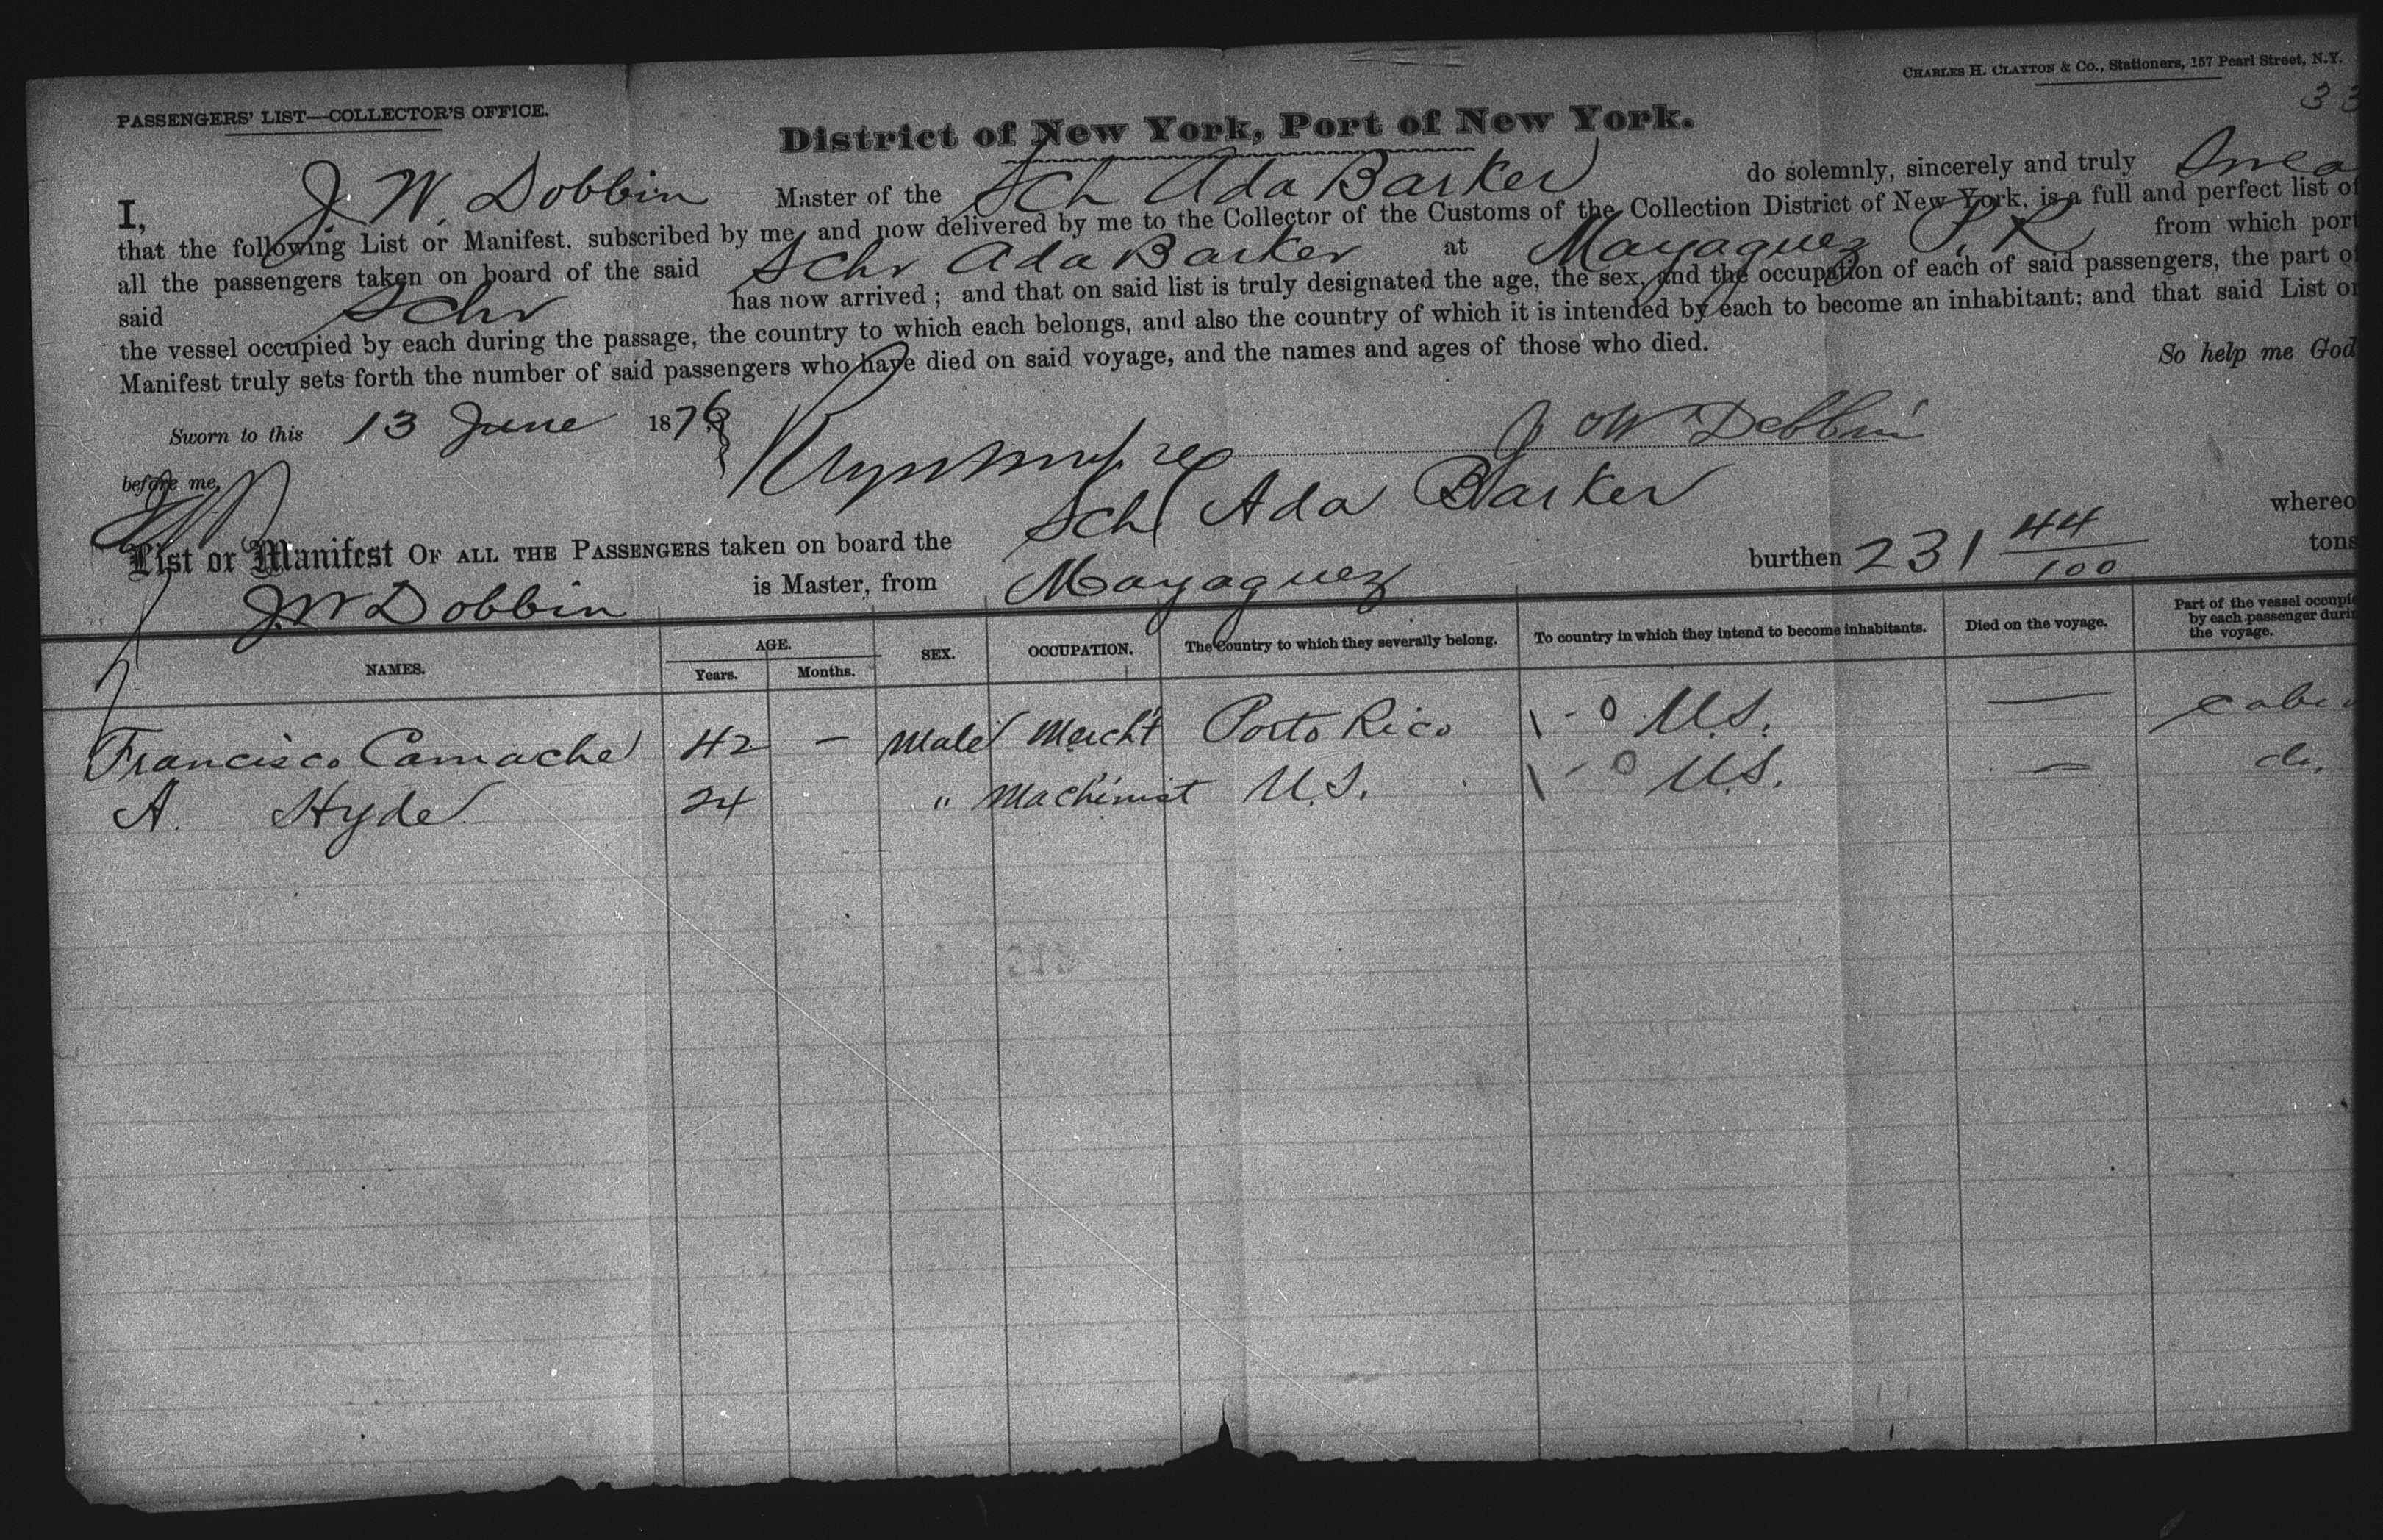 CHARLES H. CLAYTON & CO., Stationers, 157 Pearl Street, N.Y.
PASSENGERS' LIST—COLLECTOR'S OFFICE.
33
District of New York, Port of New York.
I, J. W. Dobbin Master of the Sch Ada Barker do solemnly, sincerely and truly
that the following List or Manifest, subscribed by me, and now delivered by me to the Collector of the Customs of the Collection District of New York, is a full and perfect list of
all the passengers taken on board of the said Schr Ada Barker at Mayaguez P. R from which port
said Schr has now arrived; and that on said list is truly designated the age, the sex, and the occupation of each of said passengers, the part of
the vessel occupied by each during the passage, the country to which each belongs, and also the country of which it is intended by each to become an inhabitant; and that said List or
Manifest truly sets forth the number of said passengers who have died on said voyage, and the names and ages of those who died. So help me God
Sworn to this 13 June 1876 J W Dobbin
before me,
List or Manifest OF ALL THE PASSENGERS taken on board the Sch Ada Barker whereo
J. W Dobbin is Master, from Mayaguez burthen 231 44/100 tons
NAMES. AGE. Years. Months. SEX. OCCUPATION. The Country to which they severally belong. To country in which they intend to become inhabitants. Died on the voyage. Part of the vessel occupie by each passenger durin the voyage.
Francisco Camacho 42 — Male Mercht Porto Rico 1 - 0 U.S. — cabi
A. Hyde 24 " Machinist U.S. 1 - 0 U.S. — do.